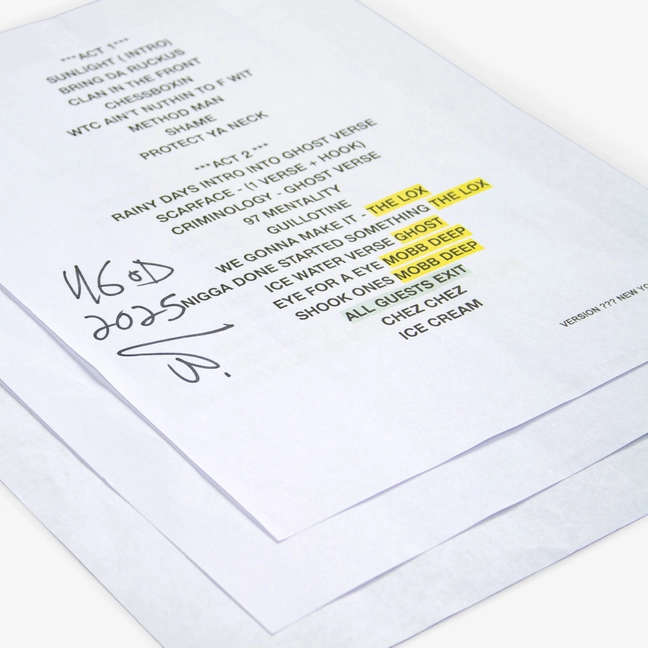 ***ACT 1***
SUNLIGHT ( INTRO)
BRING DA RUCKUS
CLAN IN THE FRONT
CHESSBOXIN
WTC AIN'T NUTHIN TO F WIT
METHOD MAN
SHAME
PROTECT YA NECK
***ACT 2 ***
RAINY DAYS INTRO INTO GHOST VERSE
SCARFACE - (1 VERSE + HOOK)
CRIMINOLOGY - GHOST VERSE
97 MENTALITY
GUILLOTINE
WE GONNA MAKE IT - THE LOX
NIGGA DONE STARTED SOMETHING THE LOX
ICE WATER VERSE GHOST
EYE FOR A EYE MOBB DEEP
SHOOK ONES MOBB DEEP
ALL GUESTS EXIT
CHEZ CHEZ
ICE CREAM
2025
VERSION ??? NEW